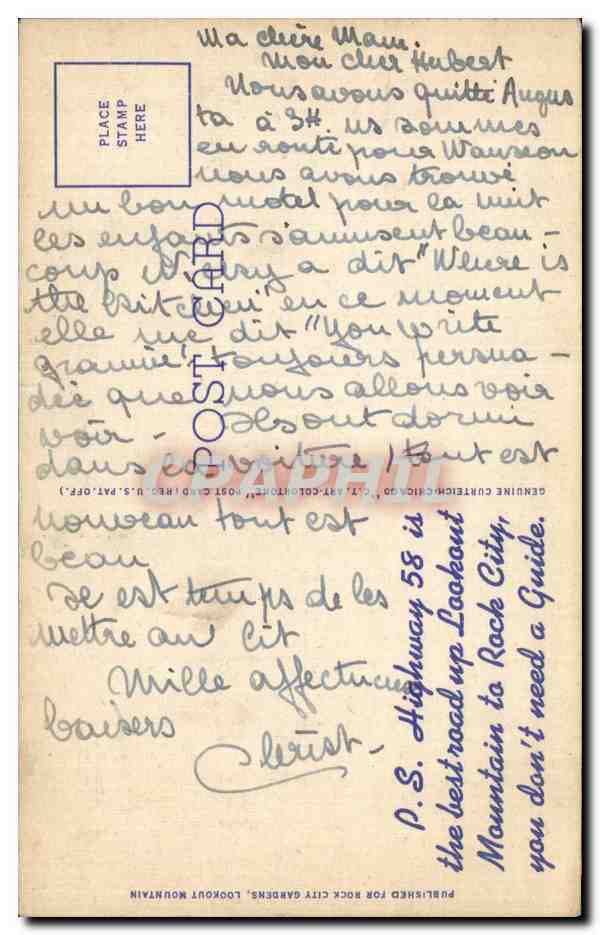 Ma chère Mam.
Mon cher Hubert
Nous avons quitté Augus
ta à 3H. ns sommes
en route pour Wauseon
nous avons trouvé
un bon motel pour la nuit
les enfants s'amusent beau-
coup a dit "Where is
the kitchen" en ce moment
elle me dit "You write
grannie", toujours persua-
dée que nous allons voir
voir - Ils ont dormi
dans la voiture, tout est
nouveau tout est
beau
Il est temps de les
mettre au lit
Mille affectueux
baisers
PLACE
STAMP
HERE
POST CARD
GENUINE CURTEICH-CHICAGO "C.T. ART-COLORTONE" POST CARD (REG. U.S. PAT. OFF.)
P.S. Highway 58 is
the best road up Lookout
Mountain to Rock City,
you don't need a Guide.
PUBLISHED FOR ROCK CITY GARDENS, LOOKOUT MOUNTAIN
CPAPHIL